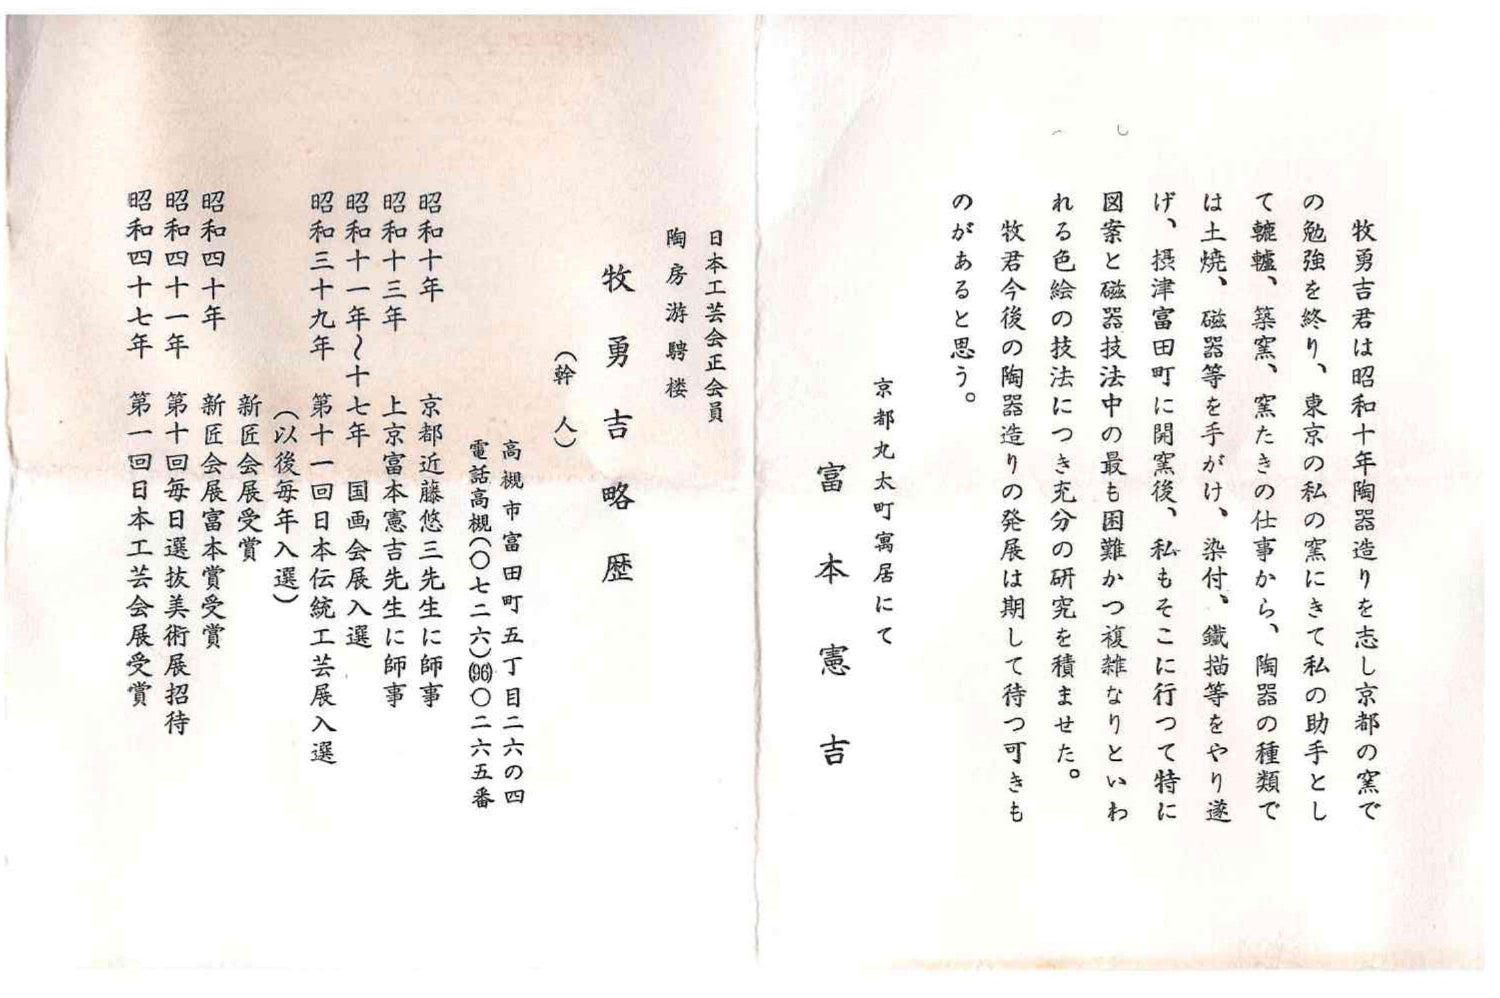 牧勇吉君は昭和十年陶器造りを志し京都の窯で
の勉強を終り、東京の私の窯にきて私の助手とし
て轆轤、築窯、窯たきの仕事から、陶器の種類で
は土焼、磁器等を手がけ、染付、鐵描等をやり遂
げ、摂津富田町に開窯後、私もそこに行つて特に
図案と磁器技法中の最も困難かつ複雑なりといわ
れる色絵の技法につき充分の研究を積ませた。
牧君今後の陶器造りの発展は期して待つ可きも
のがあると思う。
京都丸太町寓居にて
富本憲吉
日本工芸会正会員
陶房游騁楼
牧勇吉略歴
(幹人)
高槻市富田町五丁目二六の四
電話高槻(〇七二六)(96)〇二六五番
昭和十年 京都近藤悠三先生に師事
昭和十三年 上京富本憲吉先生に師事
昭和十一年~十七年 国画会展入選
昭和三十九年 第十一回日本伝統工芸展入選
(以後毎年入選)
新匠会展受賞
昭和四十年 新匠会展富本賞受賞
昭和四十一年 第十回毎日選抜美術展招待
昭和四十七年 第一回日本工芸会展受賞